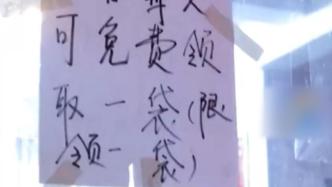 可免费领
取一袋(限
领一袋)